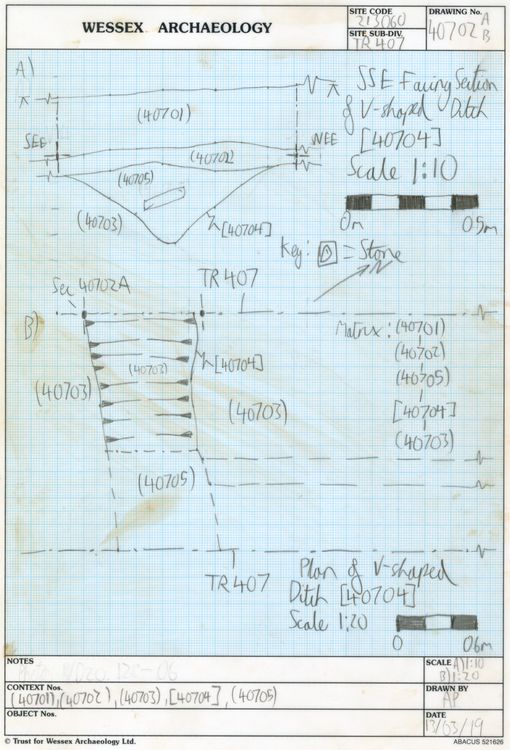 WESSEX ARCHAEOLOGY
SITE CODE
213060
SITE SUB-DIV.
TR 407
DRAWING No.
40702 A
B
A)
SSE Facing Section
of V-shaped Ditch
[40704]
Scale 1:10
0m 0.5m
Key: = Stone
(40701)
SEE NEE
(40702)
(40705)
(40703) [40704]
N
Sec 40702A TR 407
B)
Matrix: (40701)
(40702)
(40705)
[40704]
(40703)
[40704]
(40703) (40703) (40703)
(40705)
TR 407
Plan of V-shaped
Ditch [40704]
Scale 1:20
0 0.6m
NOTES
SCALE A) 1:10
B) 1:20
CONTEXT Nos.
(40701), (40702), (40703), [40704], (40705)
DRAWN BY
AP
OBJECT Nos.
DATE
13/03/19
© Trust for Wessex Archaeology Ltd.
ABACUS 521626